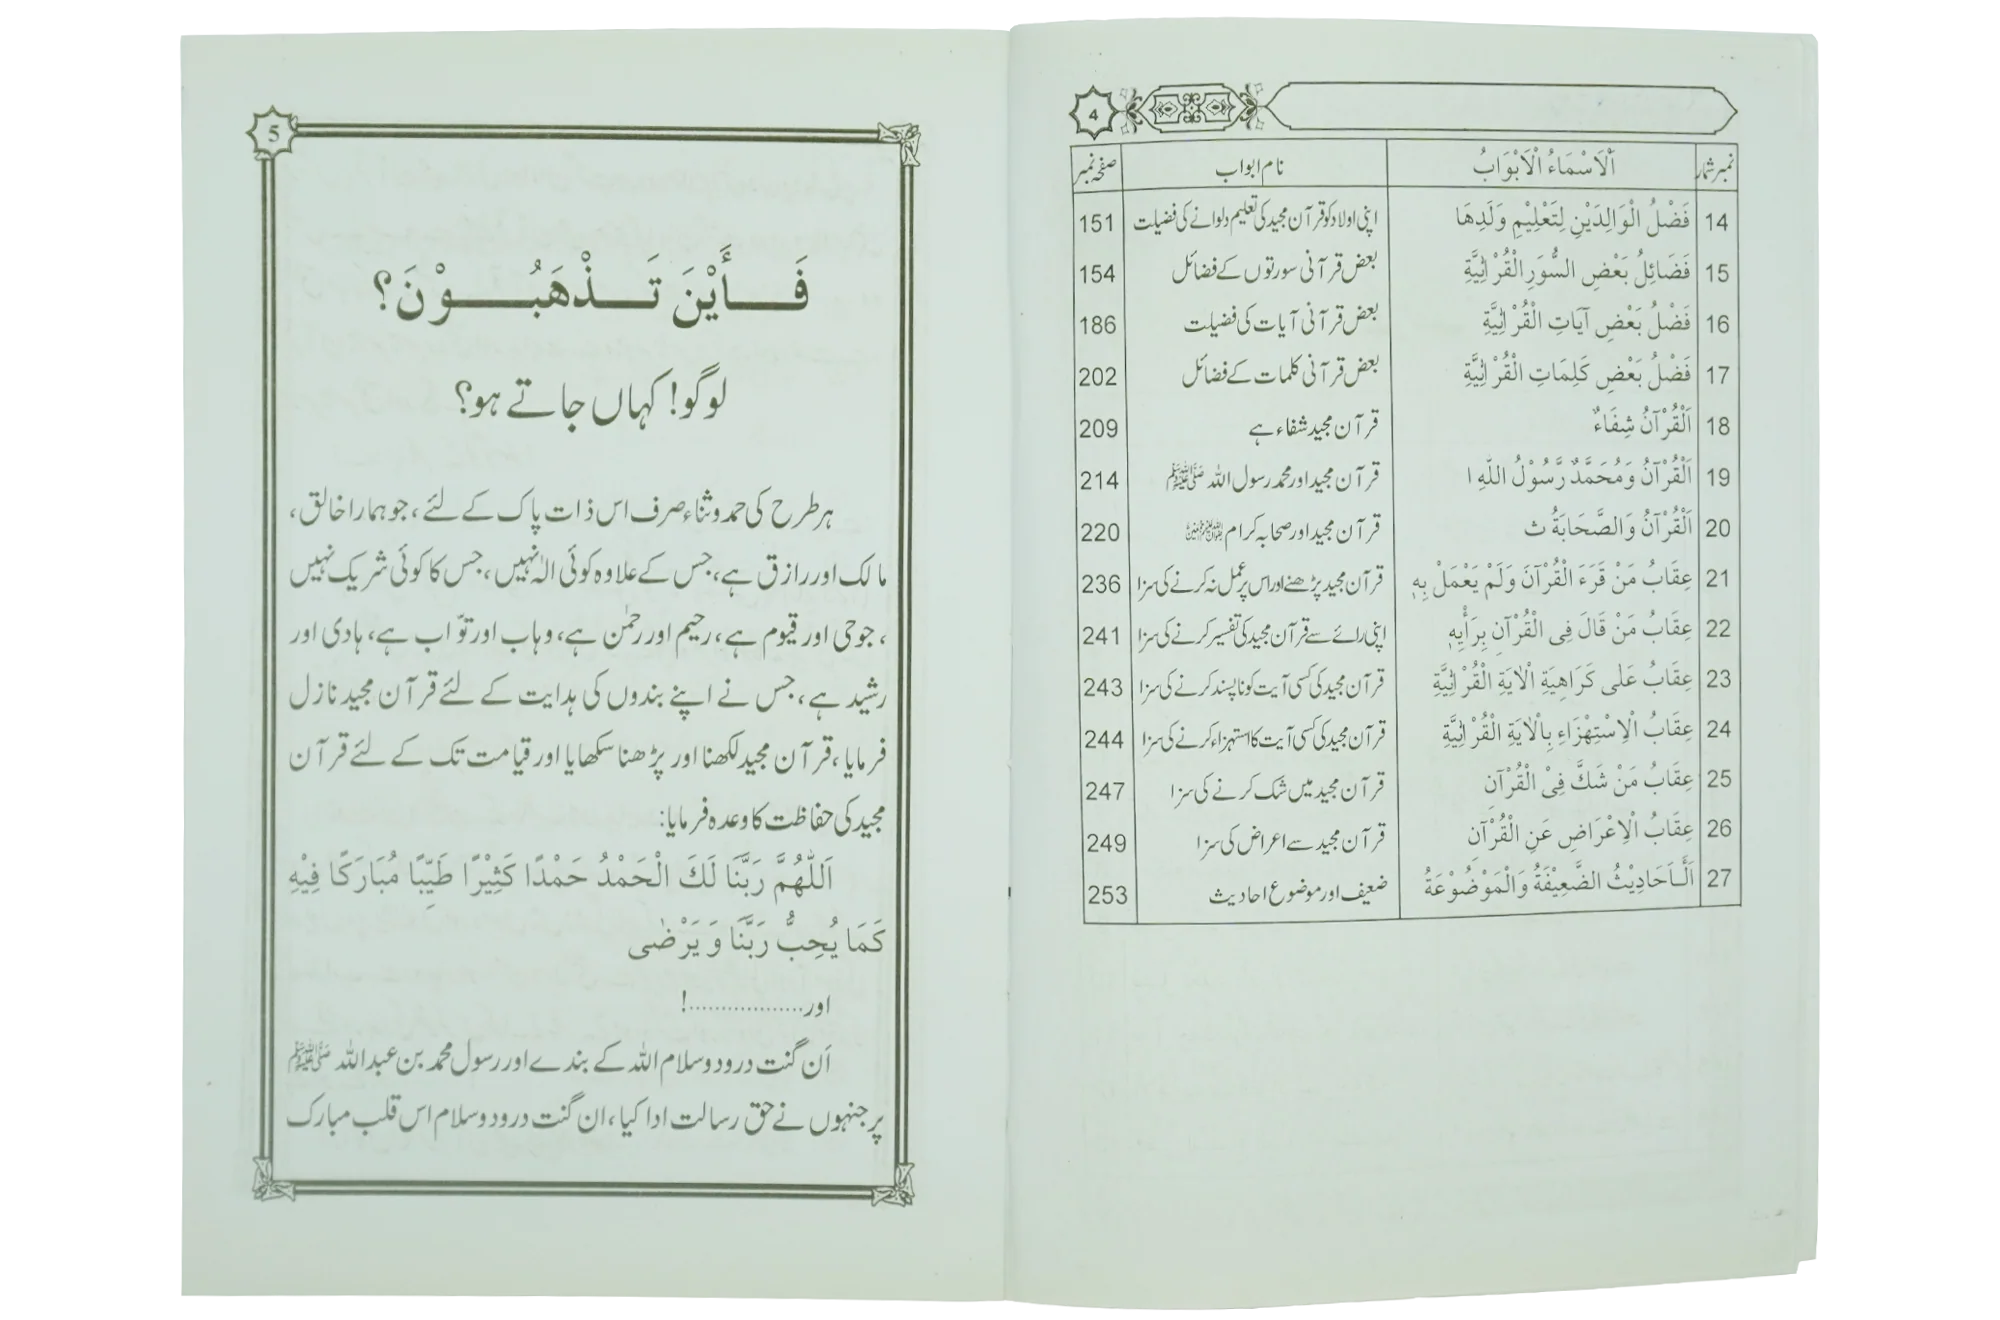 4
نمبر شمار اَلْاَسْمَاءُ الْاَبْوَابُ نام ابواب صفحہ نمبر
14 فَضْلُ الْوَالِدَيْنِ لِتَعْلِيْمِ وَلَدِهَا اپنی اولاد کو قرآن مجید کی تعلیم دلوانے کی فضیلت 151
15 فَضَائِلُ بَعْضِ السُّوَرِ الْقُرْاٰنِيَّةِ بعض قرآنی سورتوں کے فضائل 154
16 فَضْلُ بَعْضِ آيَاتِ الْقُرْاٰنِيَّةِ بعض قرآنی آیات کی فضیلت 186
17 فَضْلُ بَعْضِ كَلِمَاتِ الْقُرْاٰنِيَّةِ بعض قرآنی کلمات کے فضائل 202
18 اَلْقُرْآنُ شِفَاءٌ قرآن مجید شفاء ہے 209
19 اَلْقُرْآنُ وَمُحَمَّدٌ رَّسُوْلُ اللّٰهِ ا قرآن مجید اور محمد رسول اللہ ﷺ 214
20 اَلْقُرْآنُ وَالصَّحَابَةُ ث قرآن مجید اور صحابہ کرام رضی اللہ عنہم 220
21 عِقَابُ مَنْ قَرَءَ الْقُرْآنَ وَلَمْ يَعْمَلْ بِهٖ قرآن مجید پڑھنے اور اس پر عمل نہ کرنے کی سزا 236
22 عِقَابُ مَنْ قَالَ فِى الْقُرْآنِ بِرَأْيِهٖ اپنی رائے سے قرآن مجید کی تفسیر کرنے کی سزا 241
23 عِقَابُ عَلٰى كَرَاهِيَةِ الْاٰيَةِ الْقُرْاٰنِيَّةِ قرآن مجید کی کسی آیت کو ناپسند کرنے کی سزا 243
24 عِقَابُ الْاِسْتِهْزَاءِ بِالْاٰيَةِ الْقُرْاٰنِيَّةِ قرآن مجید کی کسی آیت کا استہزاء کرنے کی سزا 244
25 عِقَابُ مَنْ شَكَّ فِىْ الْقُرْآنِ قرآن مجید میں شک کرنے کی سزا 247
26 عِقَابُ الْاِعْرَاضِ عَنِ الْقُرْآنِ قرآن مجید سے اعراض کی سزا 249
27 اَلْاَحَادِيْثُ الضَّعِيْفَةُ وَالْمَوْضُوْعَةُ ضعیف اور موضوع احادیث 253
5
فَأَيْنَ تَذْهَبُوْنَ؟
لوگو! کہاں جاتے ہو؟
ہر طرح کی حمد وثناء صرف اس ذات پاک کے لئے، جو ہمارا خالق،
مالک اور رازق ہے، جس کے علاوہ کوئی الٰہ نہیں، جس کا کوئی شریک نہیں
، جو حی اور قیوم ہے، رحیم اور رحمٰن ہے، وہاب اور توّاب ہے، ہادی اور
رشید ہے، جس نے اپنے بندوں کی ہدایت کے لئے قرآن مجید نازل
فرمایا، قرآن مجید لکھنا اور پڑھنا سکھایا اور قیامت تک کے لئے قرآن
مجید کی حفاظت کا وعدہ فرمایا:
اَللّٰهُمَّ رَبَّنَا لَكَ الْحَمْدُ حَمْدًا كَثِيْرًا طَيِّبًا مُبَارَكًا فِيْهِ
كَمَا يُحِبُّ رَبَّنَا وَ يَرْضٰى
اور..................!
اَن گنت درود وسلام اللہ کے بندے اور رسول محمد بن عبداللہ ﷺ
پر جنہوں نے حق رسالت ادا کیا، ان گنت درود وسلام اس قلب مبارک